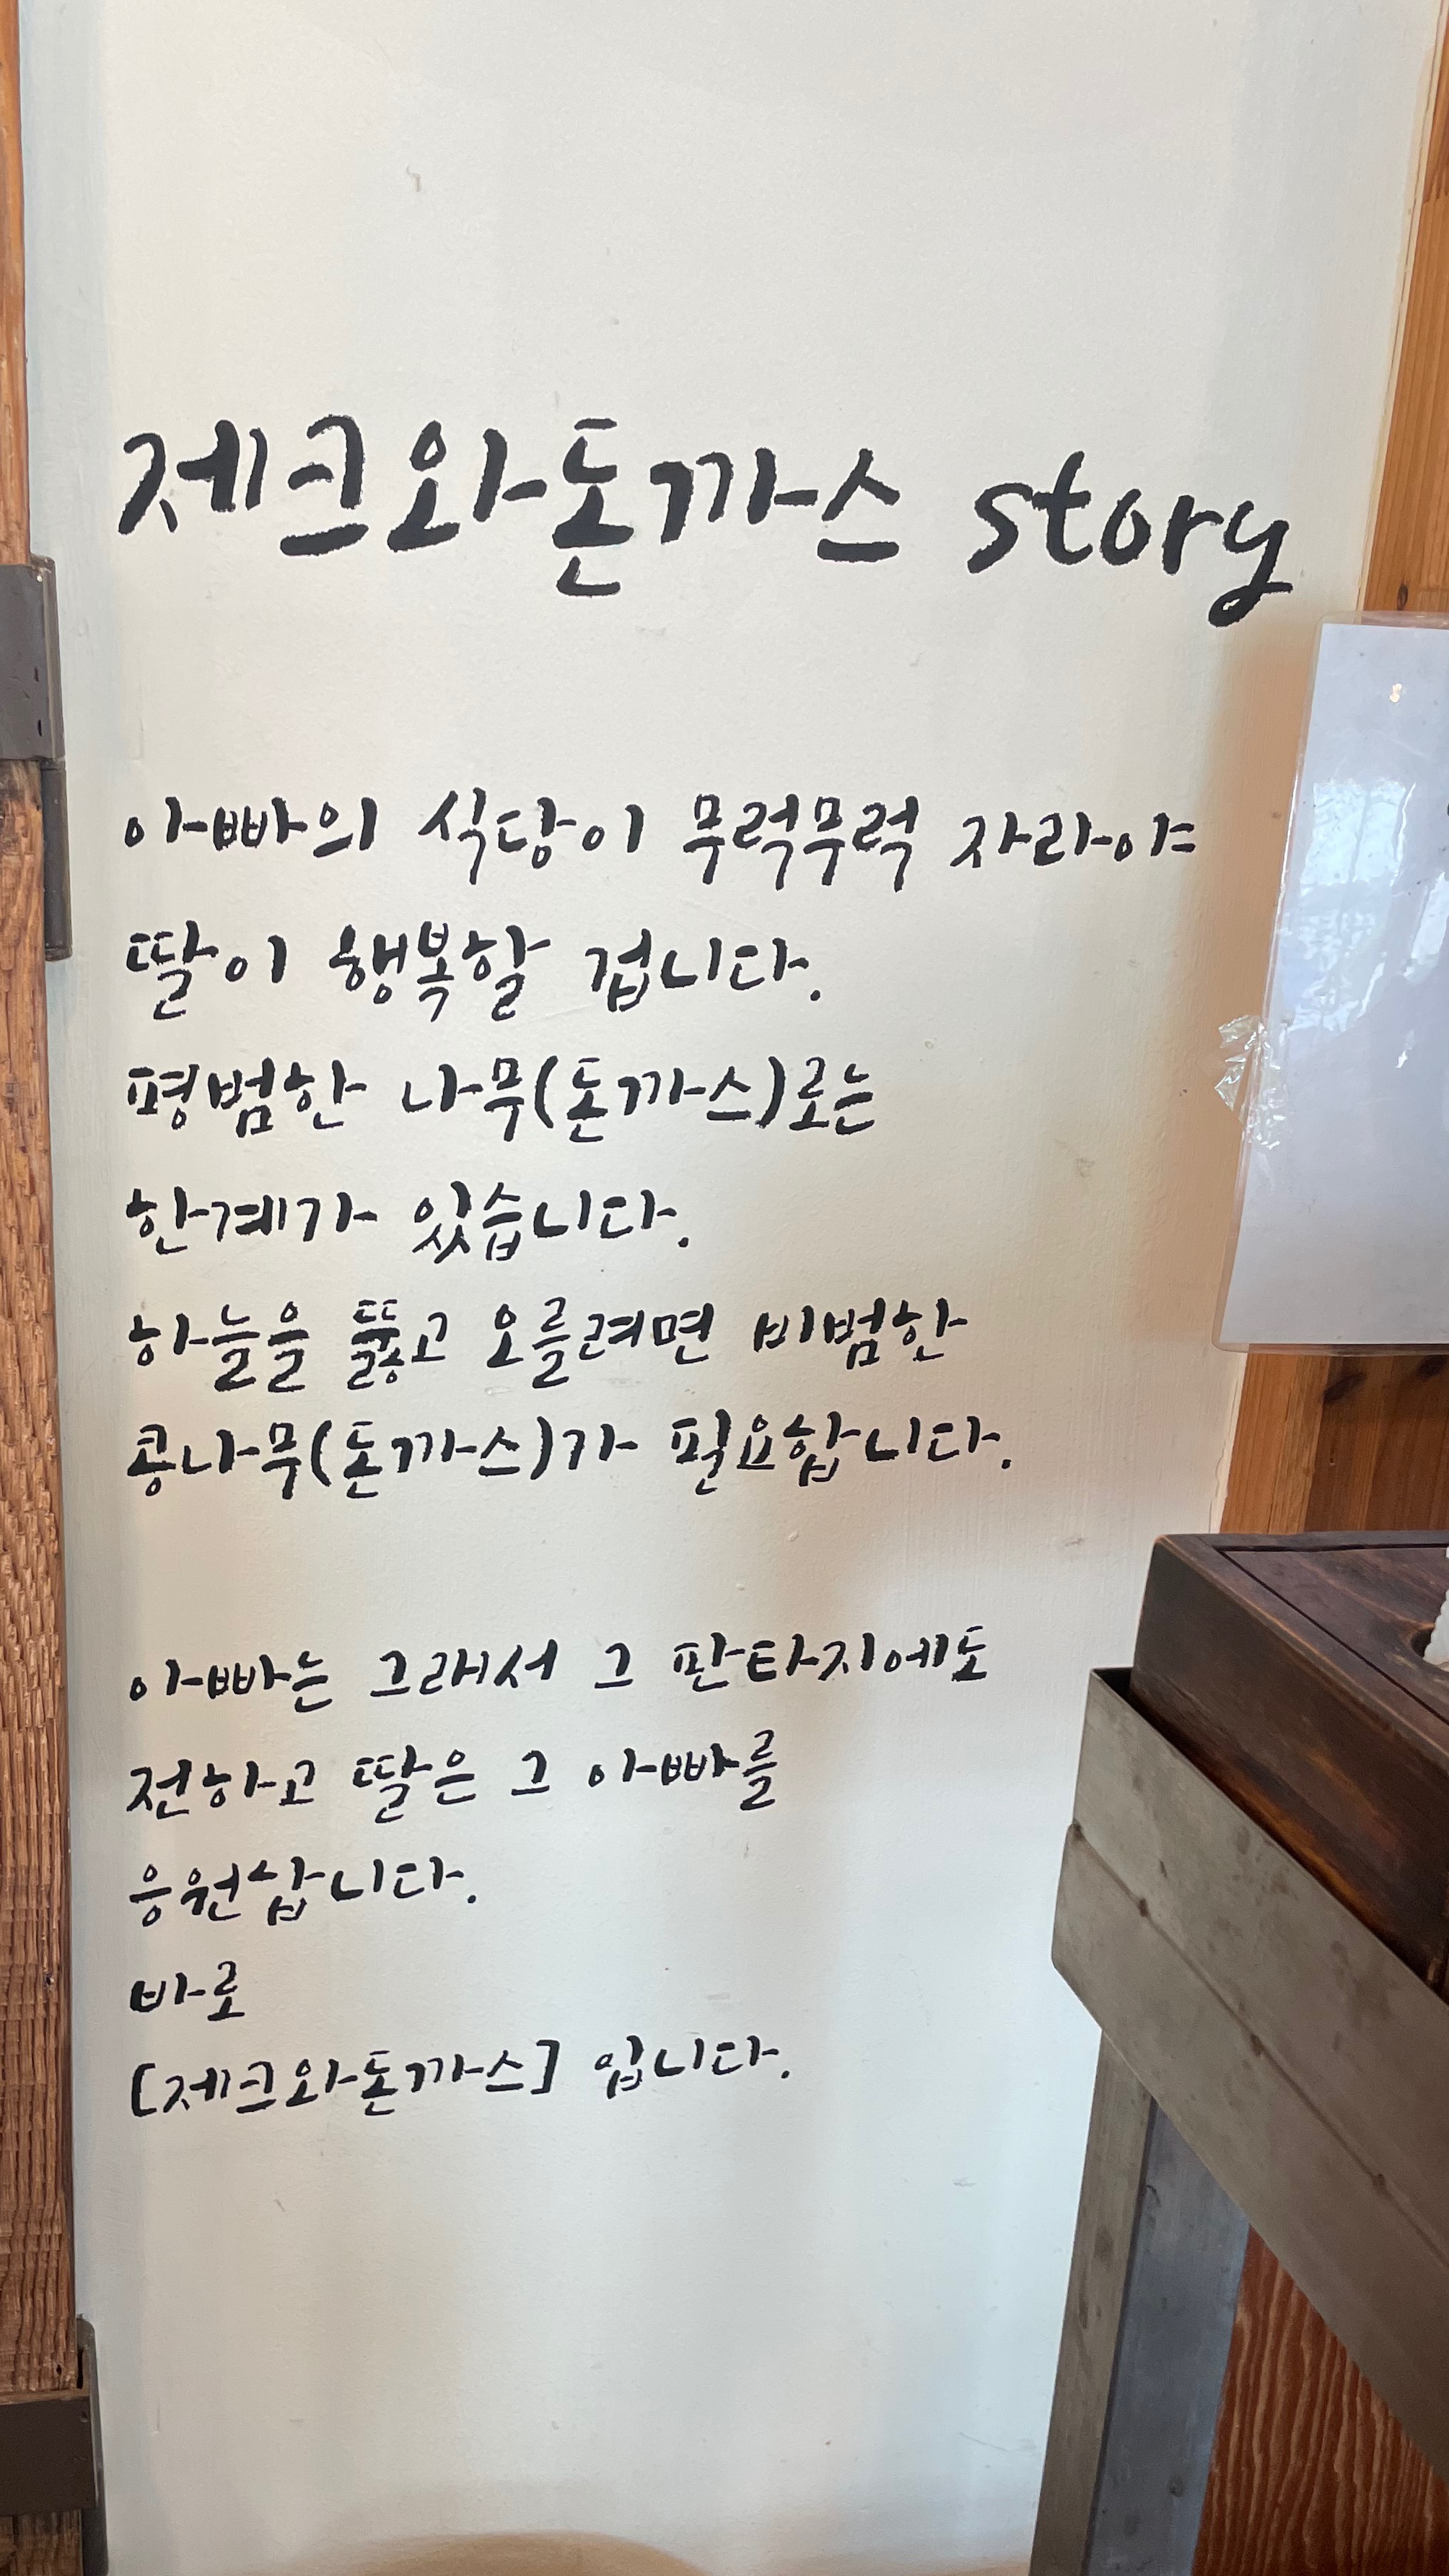 제크와돈까스 story
아빠의 식당이 무럭무럭 자라야
딸이 행복할 겁니다.
평범한 나무(돈까스)로는
한계가 있습니다.
하늘을 뚫고 오를려면 비범한
콩나무(돈까스)가 필요합니다.
아빠는 그래서 그 판타지에도
전하고 딸은 그 아빠를
응원삽니다.
바로
[제크와돈까스] 입니다.